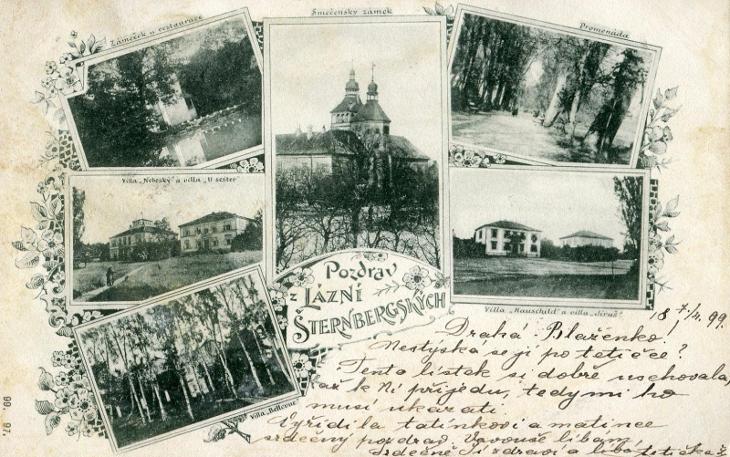 Smečenský zámek
Zámeček u restaurace
Promenáda
Villa „Nebeský“ a villa „U sester“
Villa „Hauschild“ a villa „Jiruš“
Villa „Bellevue“
Pozdrav
z Lázní
Šternbergských
99. 97.
18 7/4. 99.
Drahá Blaženko!
Nestýská se jí po tetičce?
Tento lístek si dobře uschovala,
až k Ní přijedu, tedy mi ho
musí ukázati.
Vyřídila tatínkovi a matince
srdečný pozdrav Vavouše líbám,
Srdečně Ji zdraví a líbá tetička